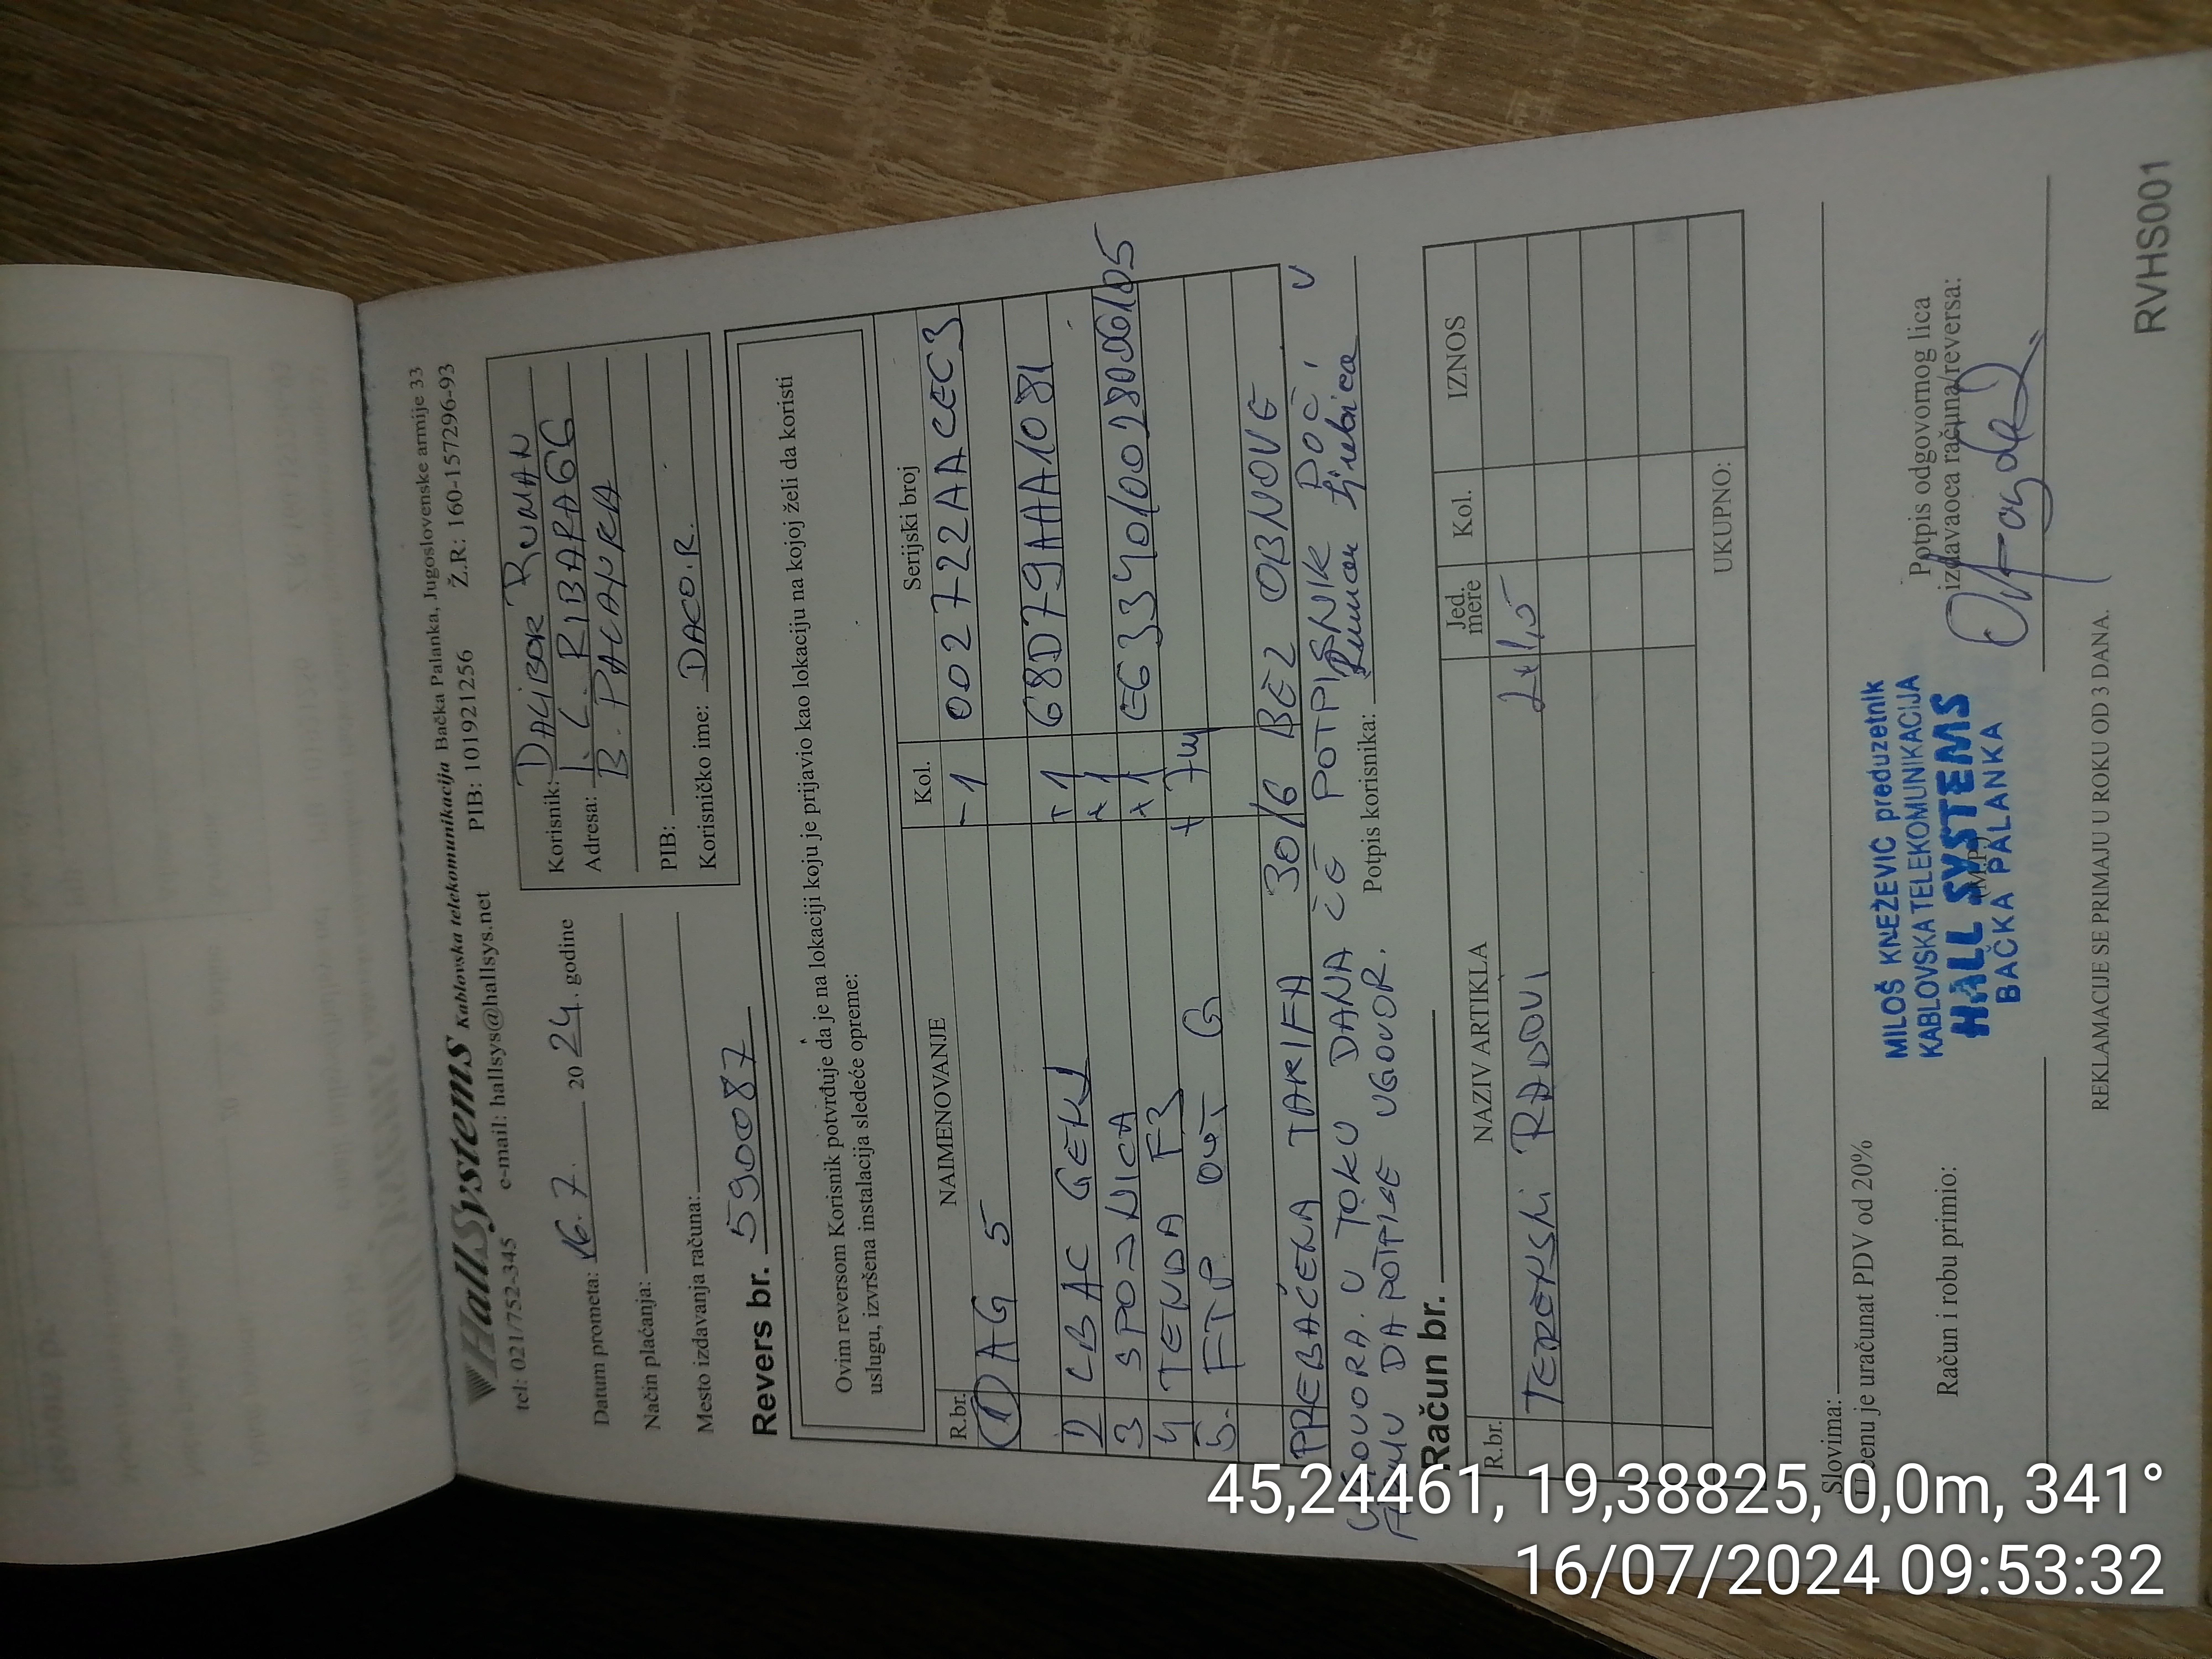 HallSystems Kablovska telekomunikacija Bačka Palanka, Jugoslovenske armije 33
tel: 021/752-345 e-mail: hallsys@hallsys.net PIB: 101921256 Ž.R: 160-157296-93
Datum prometa: 16.7. 20 24. godine
Način plaćanja:
Mesto izdavanja računa:
Korisnik: DALIBOR RUMAN
Adresa: I. L. RIBARA 66
B. PALANKA
PIB:
Korisničko ime: DACO.R.
Revers br. 590087
Ovim reversom Korisnik potvrđuje da je na lokaciji koju je prijavio kao lokaciju na kojoj želi da koristi
uslugu, izvršena instalacija sledeće opreme:
R.br. NAIMENOVANJE Kol. Serijski broj
1 AG 5 -1 002722AACEC3
2 LBAC GEN2 +1 68D79AAA1081
3 SPOJNICA +1
4 TENDA F3 +1 E6334010028006105
5. FTP OUT. G +7m
PREBAČENA TARIFA 30/6 BEZ OBNOVE
UGOVORA. U TOKU DANA ĆE POTPISNIK DOĆI U
FIRMU DA POTPIŠE UGOVOR. Potpis korisnika: Ruman Ljubica
Račun br.
R.br. NAZIV ARTIKLA Jed. mere Kol. IZNOS
TERENSKI RADOVI 2x1,5
UKUPNO:
Slovima:
U cenu je uračunat PDV od 20%
Račun i robu primio:
MILOŠ KNEŽEVIĆ preduzetnik
KABLOVSKA TELEKOMUNIKACIJA
HALL SYSTEMS
BAČKA PALANKA
M.P.
Potpis odgovornog lica
izdavaoca računa/reversa:
REKLAMACIJE SE PRIMAJU U ROKU OD 3 DANA.
RVHS001
45,24461, 19,38825, 0,0m, 341°
16/07/2024 09:53:32